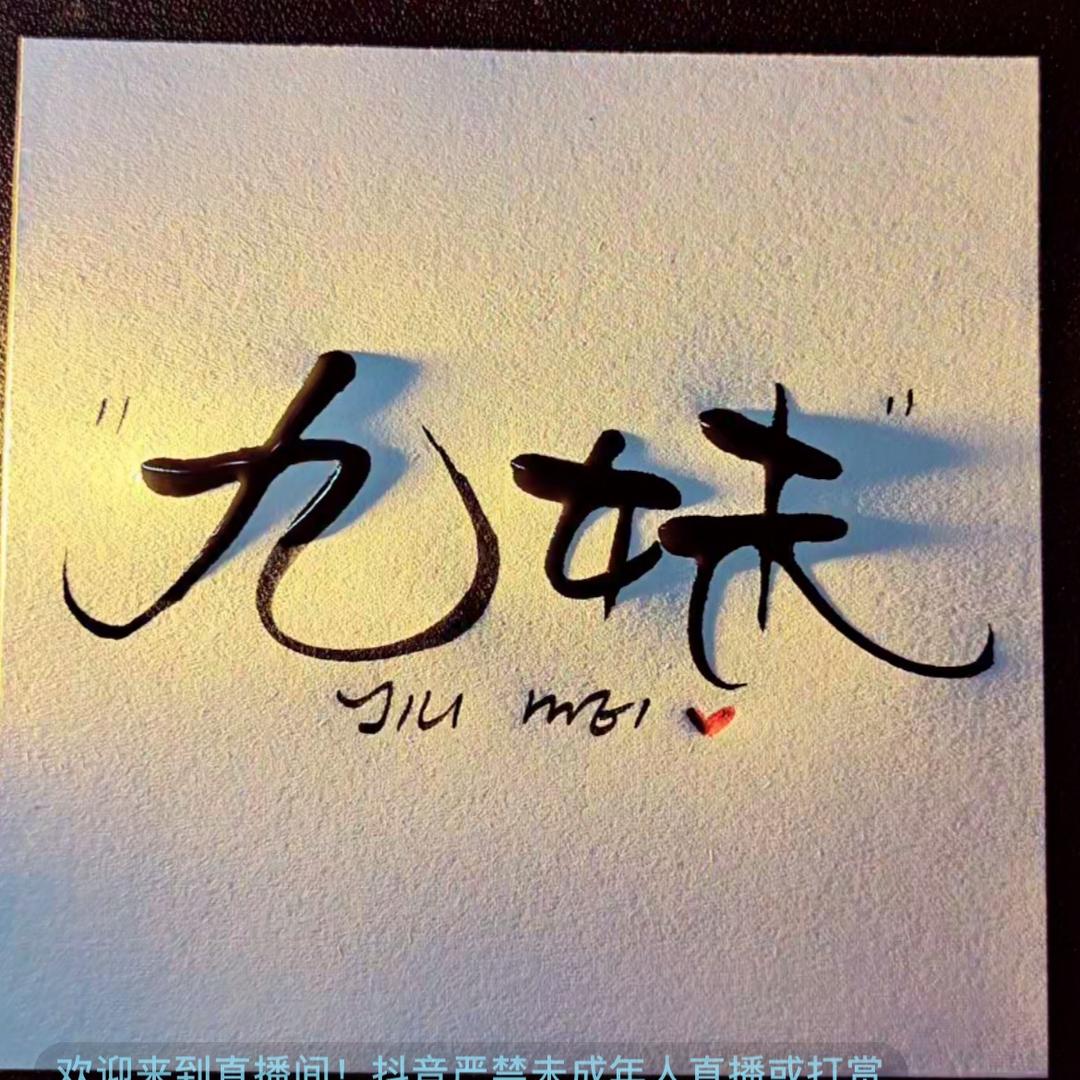 "九妹"
JIU MEI
欢迎来到直播间！抖音严禁未成年人直播或打赏